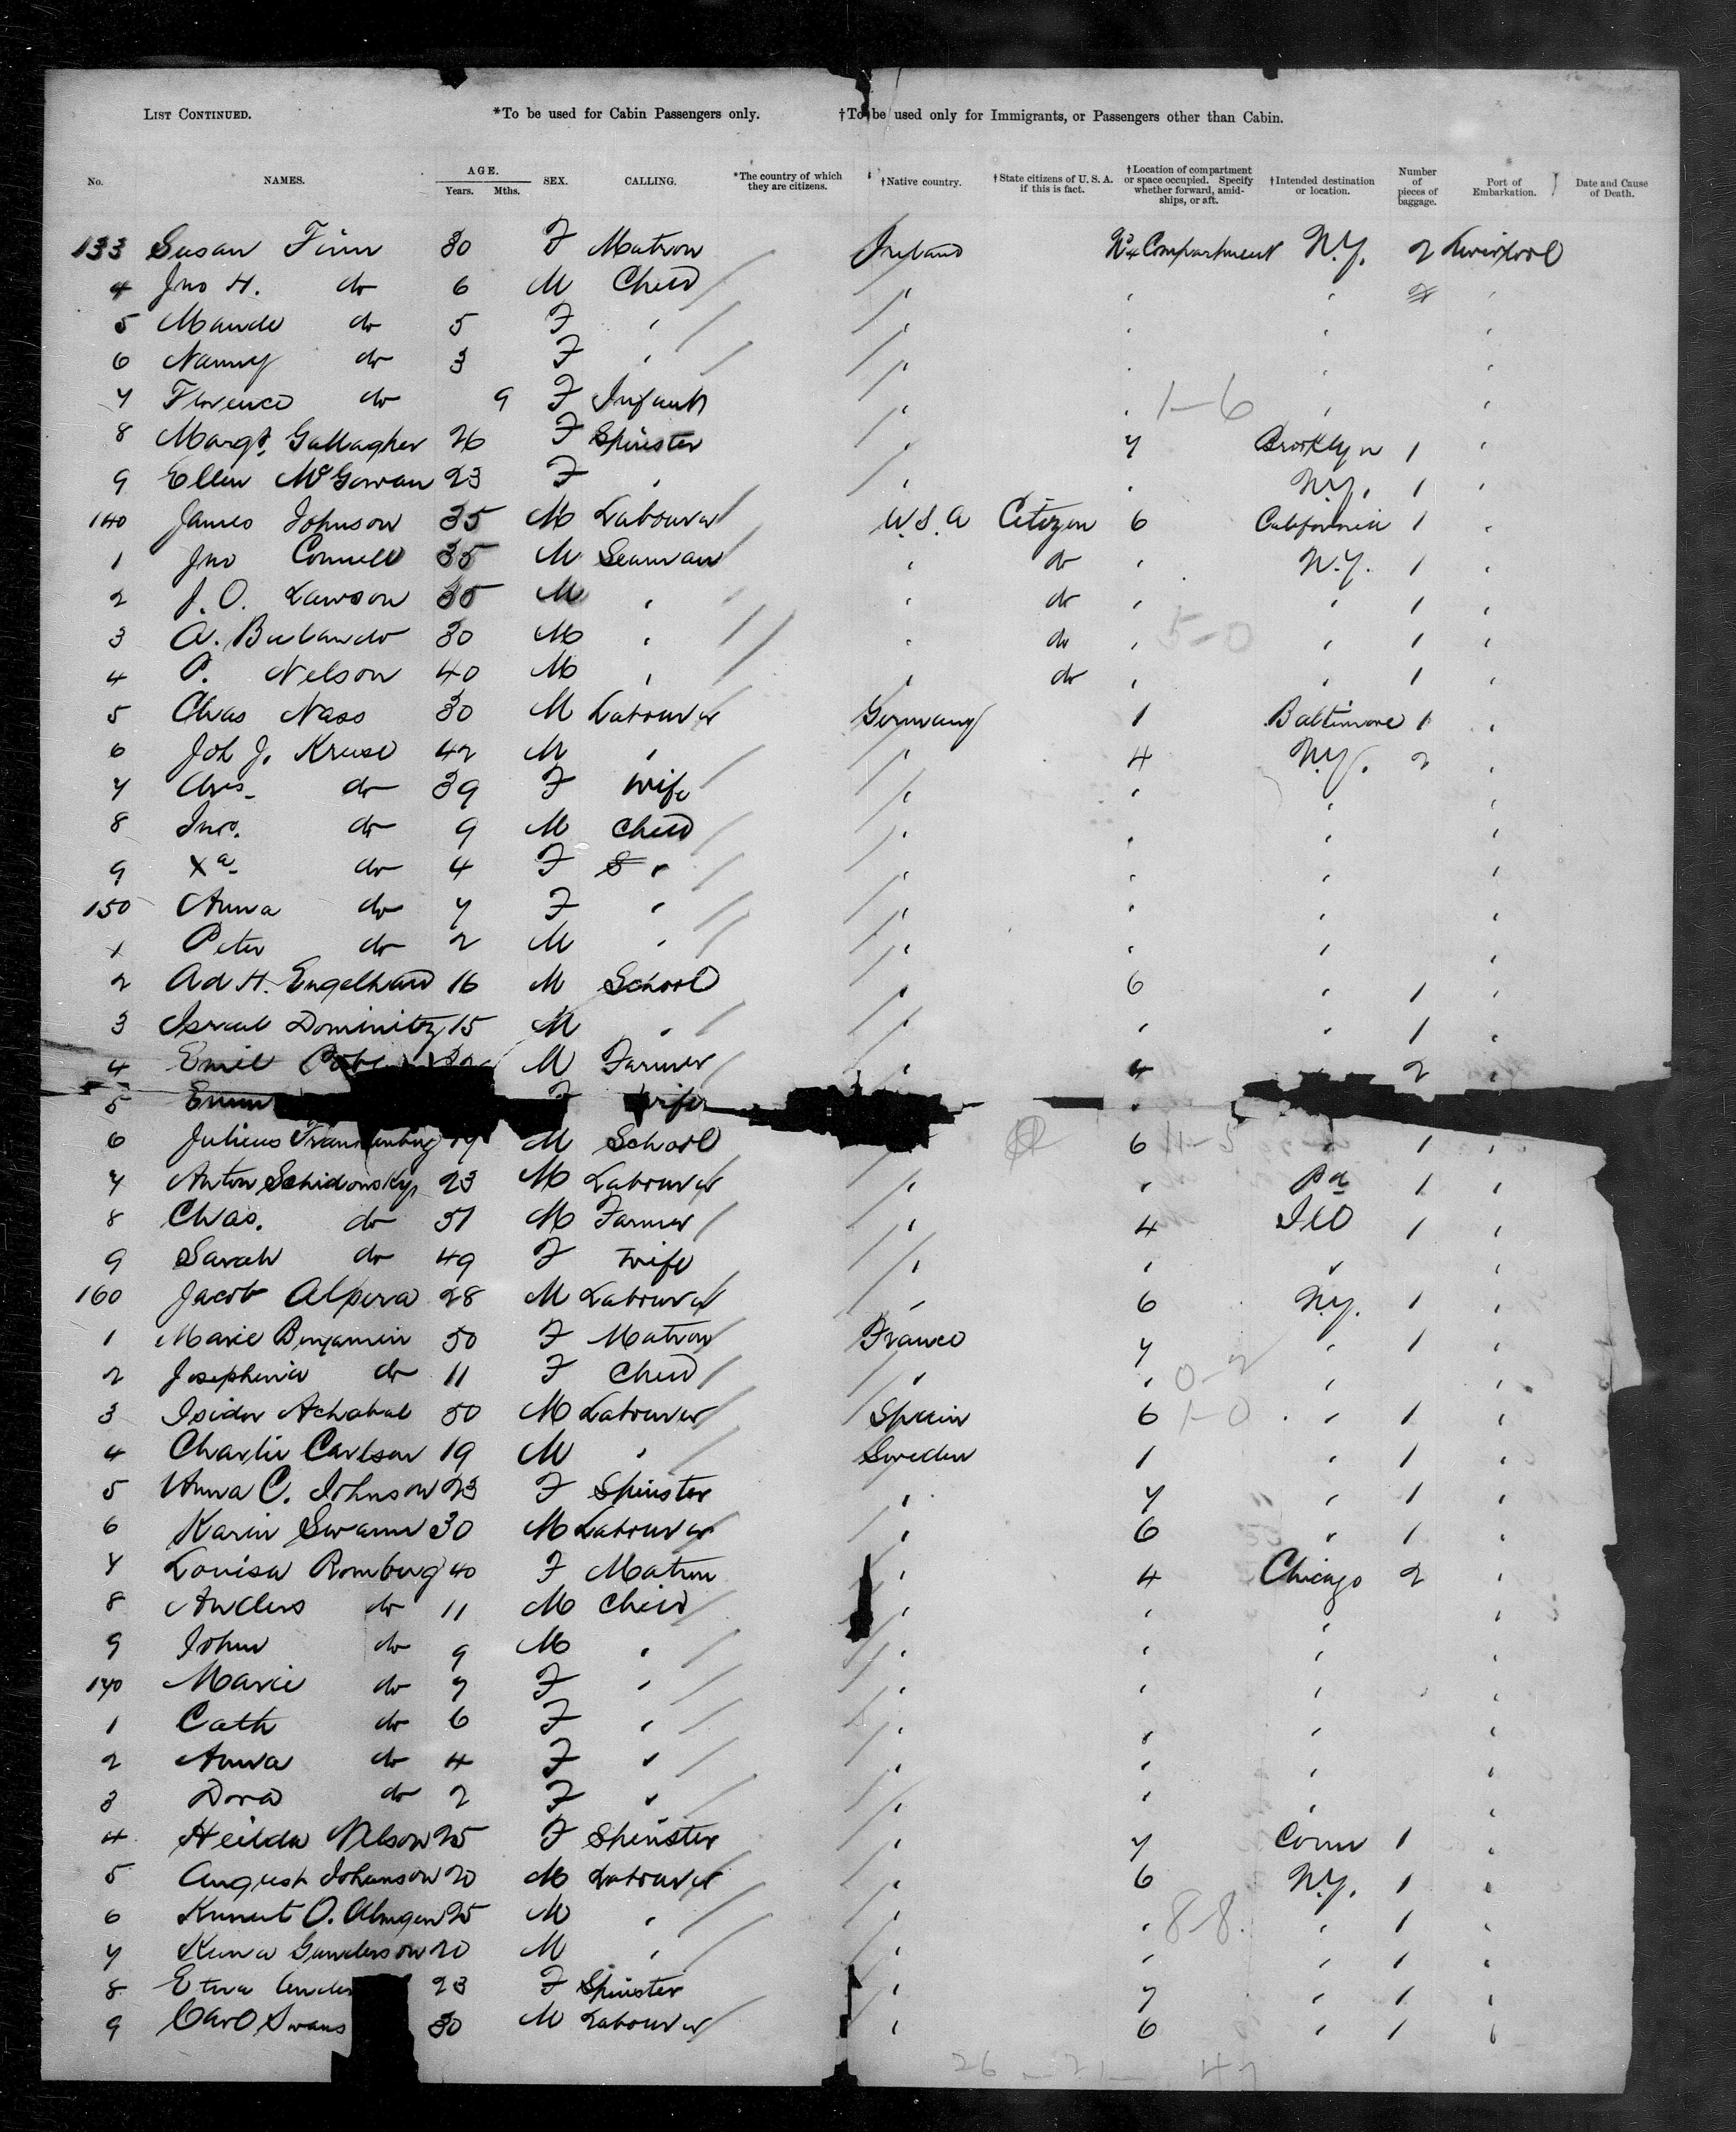 LIST CONTINUED. *To be used for Cabin Passengers only. †To be used only for Immigrants, or Passengers other than Cabin.
No. NAMES. AGE. Years. Mths. SEX. CALLING. *The country of which they are citizens. †Native country. †State citizens of U. S. A. if this is fact. †Location of compartment or space occupied. Specify whether forward, amidships, or aft. †Intended destination or location. Number of pieces of baggage. Port of Embarkation. Date and Cause of Death.
133 Susan Finn 30 F Matron Ireland No 4 Compartment N.Y. 2 Liverpool
4 Jno H. do 6 M Child " " " "
5 Maude do 5 F " " " " "
6 Nanny do 3 F " " " " "
7 Florence do 9 F Infant " " 1-6 " "
8 Margt. Gallagher 26 F Spinster " 7 Brooklyn 1 "
9 Ellen McGowan 23 F " " " N.Y. 1 "
140 James Johnson 35 M Labourer U.S.A Citizen 6 California 1 "
1 Jno Connell 35 M Seaman " do " N.Y. 1 "
2 J. O. Lawson 35 M " " do " " 1 "
3 A. 30 M " " do " 5-0 " 1 "
4 P. Nelson 40 M " " do " " 1 "
5 Chas Nass 30 M Labourer Germany 1 Baltimore 1 "
6 Joh J. Kruse 42 M " " 4 N.Y. 2 "
7 do 39 F Wife " " " "
8 Jno. do 9 M Child " " " "
9 Xa do 4 F " " " " "
150 Anna do 7 F " " " " "
1 Peter do 2 M " " " " "
2 Ad H. Engelhard 16 M School " 6 " 1 "
3 Israel Dominitz 15 M " " " " 1 "
4 Emil M Farmer " 4 2 "
5 F Wife "
6 Julius 19 M School " 6 11-5 " 1 "
7 Anton Schidonsky 23 M Labourer " " Pa 1 "
8 Chas. do 51 M Farmer " 4 Ill 1 "
9 Sarah do 49 F Wife " " " "
160 Jacob Alpera 28 M Labourer " 6 N.Y. 1 "
1 Marie Benjamin 50 F Matron France 7 " 1 "
2 Josephina do 11 F Child " " 0-2 " "
3 Isidor Achabal 50 M Labourer Spain 6 1-0 " 1 "
4 Charlie Carlson 19 M " Sweden 1 " 1 "
5 Anna C. Johnson 23 F Spinster " 7 " 1 "
6 Karin Swann 30 M Labourer " 6 " 1 "
7 Louisa Romberg 40 F Matron " 4 Chicago 2 "
8 Anders do 11 M Child " " " "
9 John do 9 M " " " " "
170 Marie do 7 F " " " " "
1 Cath do 6 F " " " " "
2 Anna do 4 F " " " " "
3 Dora do 2 F " " " " "
4 Heilda Nelson 25 F Spinster " 7 Conn 1 "
5 August Johanson 20 M Labourer " 6 N.Y. 1 "
6 Knut O. Almgen 25 M " " " 8-8. " 1 "
7 Gunderson 20 M " " " " 1 "
8 23 F Spinster " 7 " 1 "
9 Carl Swans 30 M Labourer " 6 " 1 "
26 - 21 - 47